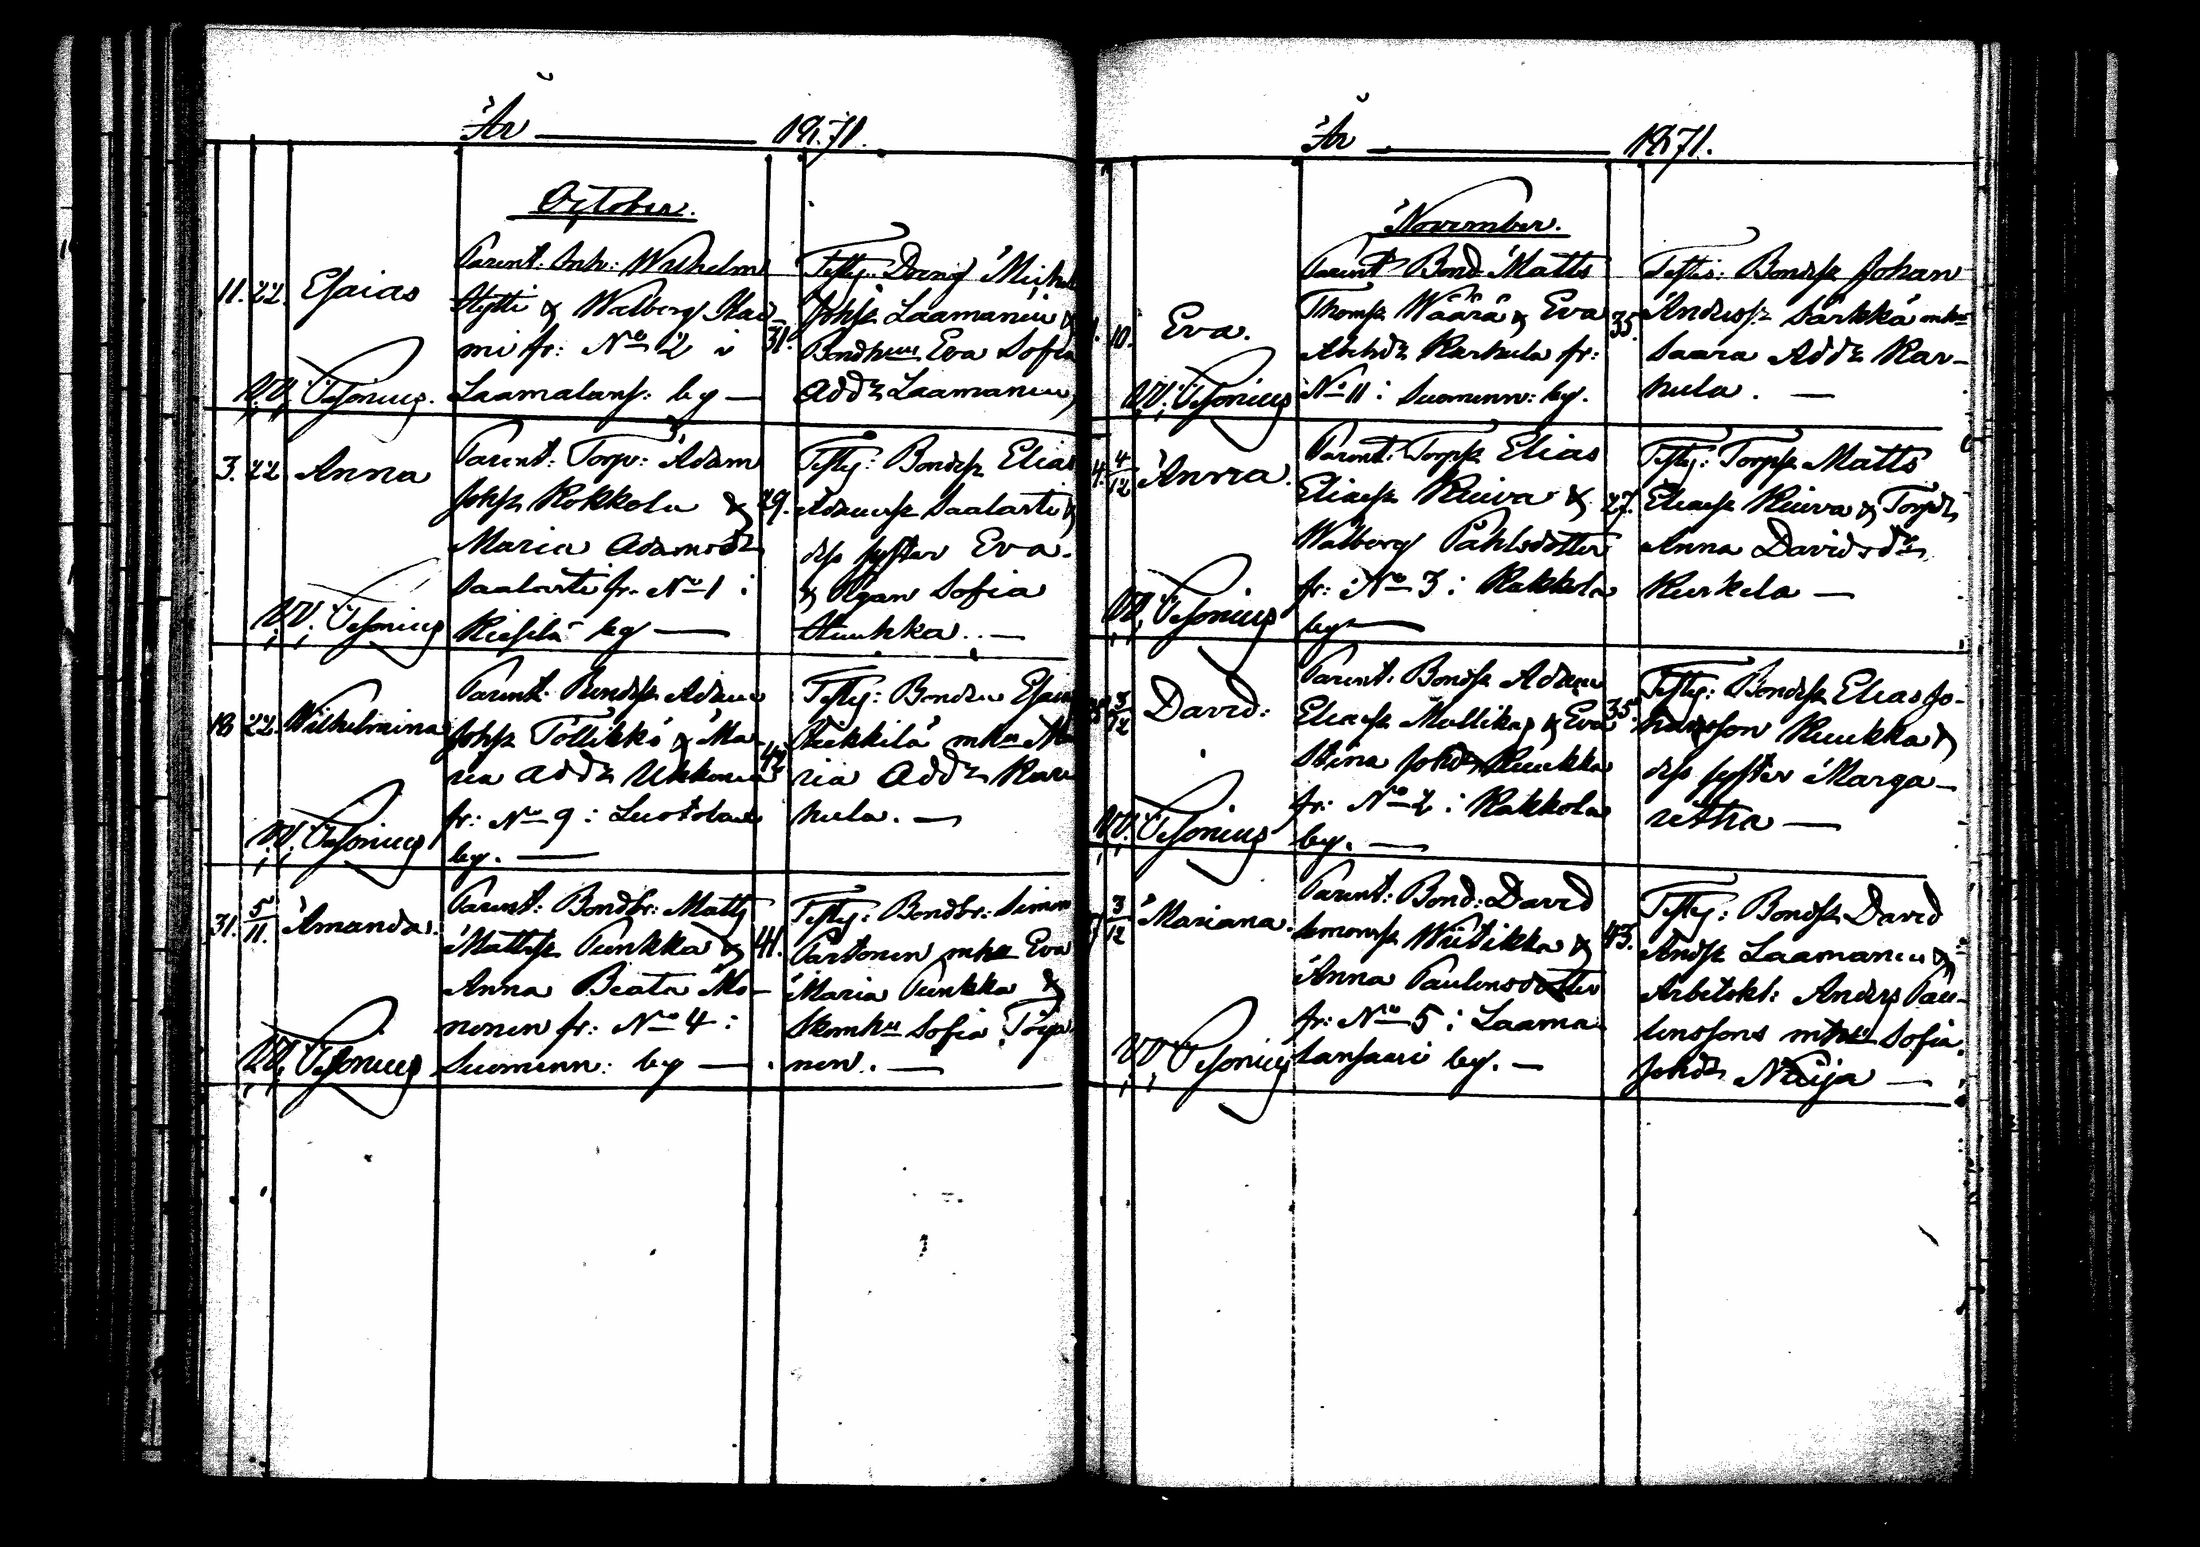 År 1871.
October.
11. 22. Esaias
Parent: Inh: Wilhelm
Hytti & Walborg Kai-
mi fr: No 2 i
Laamalans: by —
31.
Testes: Dreng Michel
Johsz Laamanen &
Bondhuu Eva Sofia
Addr Laamanen
V.V. Pesonius.
3. 22. Anna
Parent: Torp: Adam
Johsz Kokkola &
Maria Adamsdr
Saalasti fr. No 1 i
Kiesilä by —
29.
Testes: Bondesz Elias
Adamsz Saalasti &
dess syster Eva.
& Pigan Sofia
—
V.V. Pesonius
18 22. Wilhelmina
Parent: Bondesz Adam
Johsz Töllikkö & Ma-
ria Addr Ukkonen
fr: No 9 i Luotolan
by. —
Testes: Bonden Esaias
Heikkilä mhu Ma
ria Addr Kar
hula. —
V.V. Pesonius
31. 5/11. Amanda.
Parent: Bondbr: Matts
Mattsz Punkka &
Anna Beata Mo-
nonen fr: No 4 i
Suomenn: by —
41.
Testes: Bondbr: Simon
Partonen mhu Eva
Maria Punkka &
Skomhu Sofia
nen. —
V.V. Pesonius
År 1871.
November.
1. 10. Eva.
Parent Bond Matts
Thomsz Wäärä & Eva
Karhula fr:
No 11 i Suomenn: by.
35.
Testes: Bondesz Johan
Andersz Särkkä mhu
Saara Addr Kar-
hula. —
V.V. Pesonius
4. 4/12 Anna.
Parent: Torpsz Elias
Eliaesz Kuiva &
Walborg Påhlsdotter
fr: No 3 i Kakkola
by —
27.
Testes: Torpsz Matts
Eliaesz Kuiva & Torpdr
Anna Davidsdr
Kurkela —
V.V. Pesonius
3/12 David:
Parent: Bondsz Adam
Eliaesz Mullikka & Eva
Stina Johdr Kuukka
fr: No 2 i Kakkola
by. —
35.
Testes: Bondesz Elias Jo-
hansson Kuukka &
dess syster Marga-
retha —
V.V. Pesonius
3/12 Mariana.
Parent: Bond: David
Simonsz Wiitikka &
Anna Paulensdotter
fr: No 5 i Laama
lansaari by. —
43.
Testes: Bondsz David
Andsz Laamanen &
Arbetskl: Anders Pau-
lenssons mhu Sofia
Johdr Naija —
V.V. Pesonius